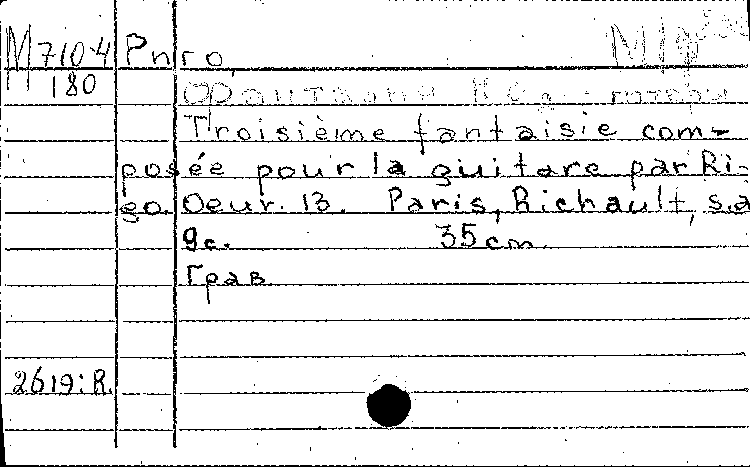 М 710-4 Риго
180
Фантазия № 3
Troisième fantaisie com-
posée pour la guitare par Ri-
go. Oeur. 13. Paris, Richault, s.a
9с. 35 cm.
Грав
2619: R.